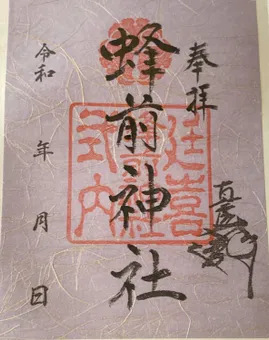 奉拝
直虎
蜂前神社
延喜
式内
令和 年 月 日